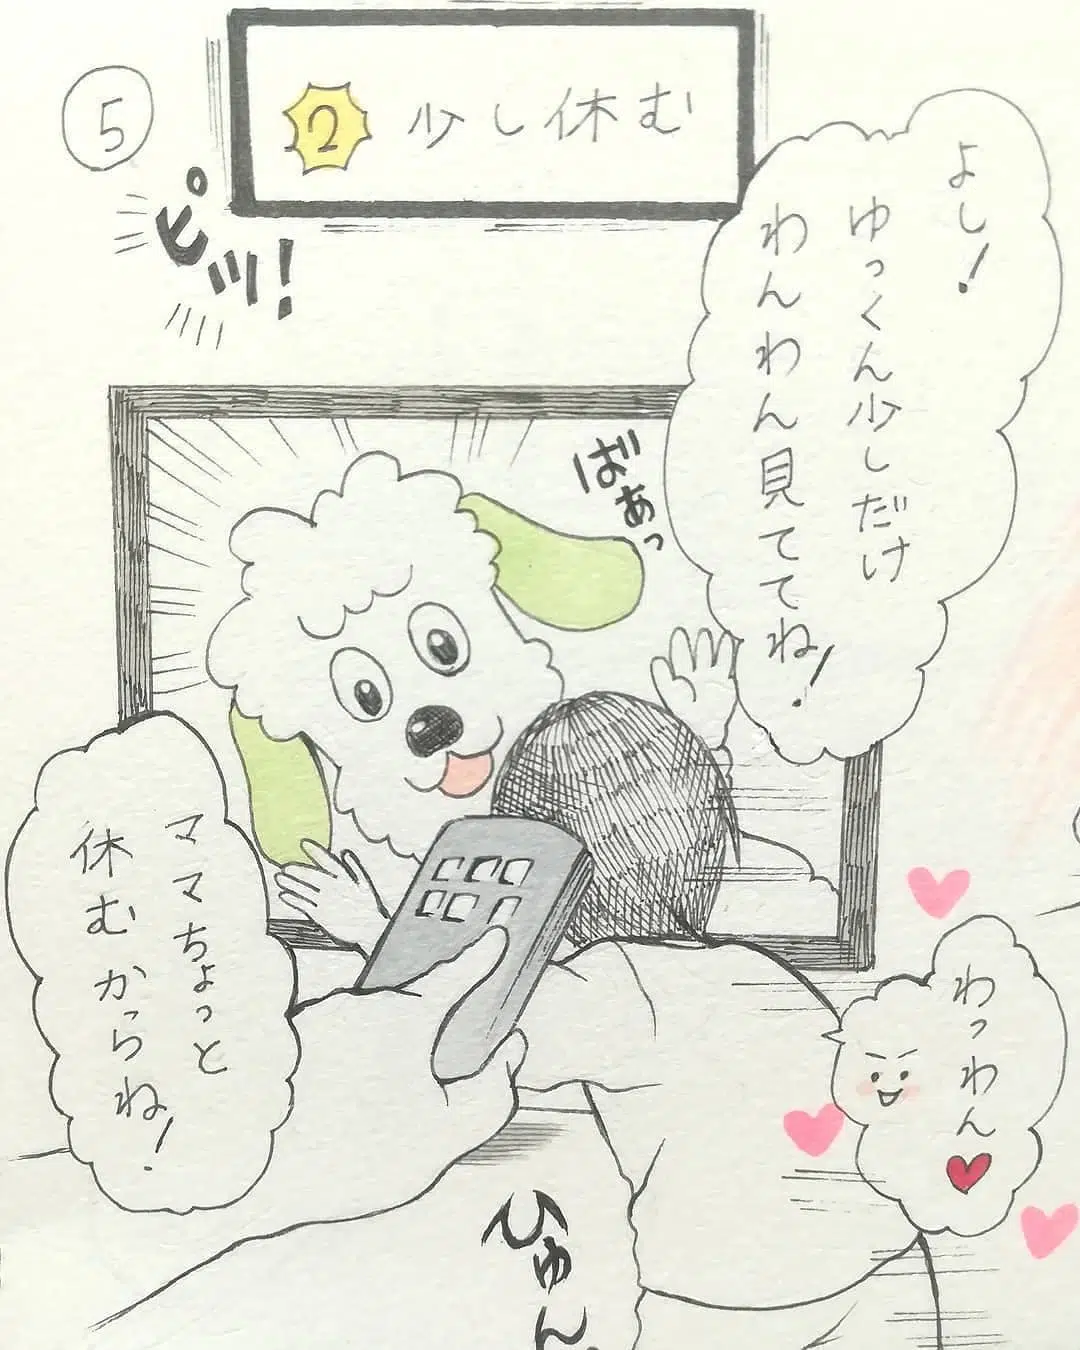 5
2 少し休む
ピッ!
よし!
ゆっくん少しだけ
わんわん見ててね!
ばあっ
ママちょっと
休むからね!
わっわん
ひゅん